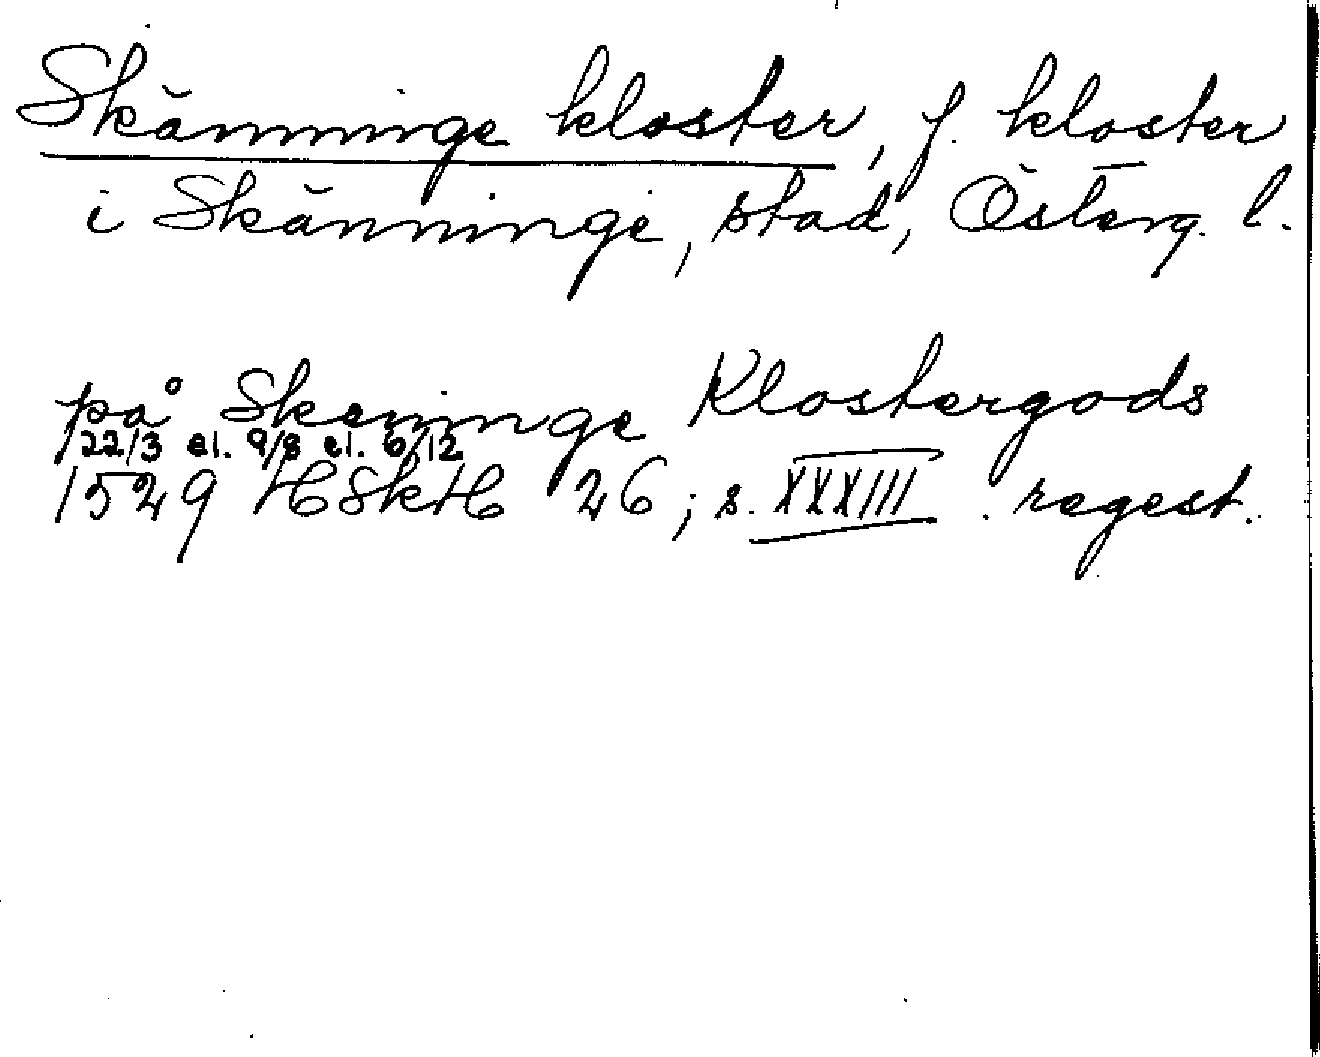 Skänninge kloster, f. kloster
i Skänninge, stad, Österg. l.
på Skeninge Klostergods
22/3 el. 9/8 el. 6/12
1529 HSkH 26; s. XXXIII regest.